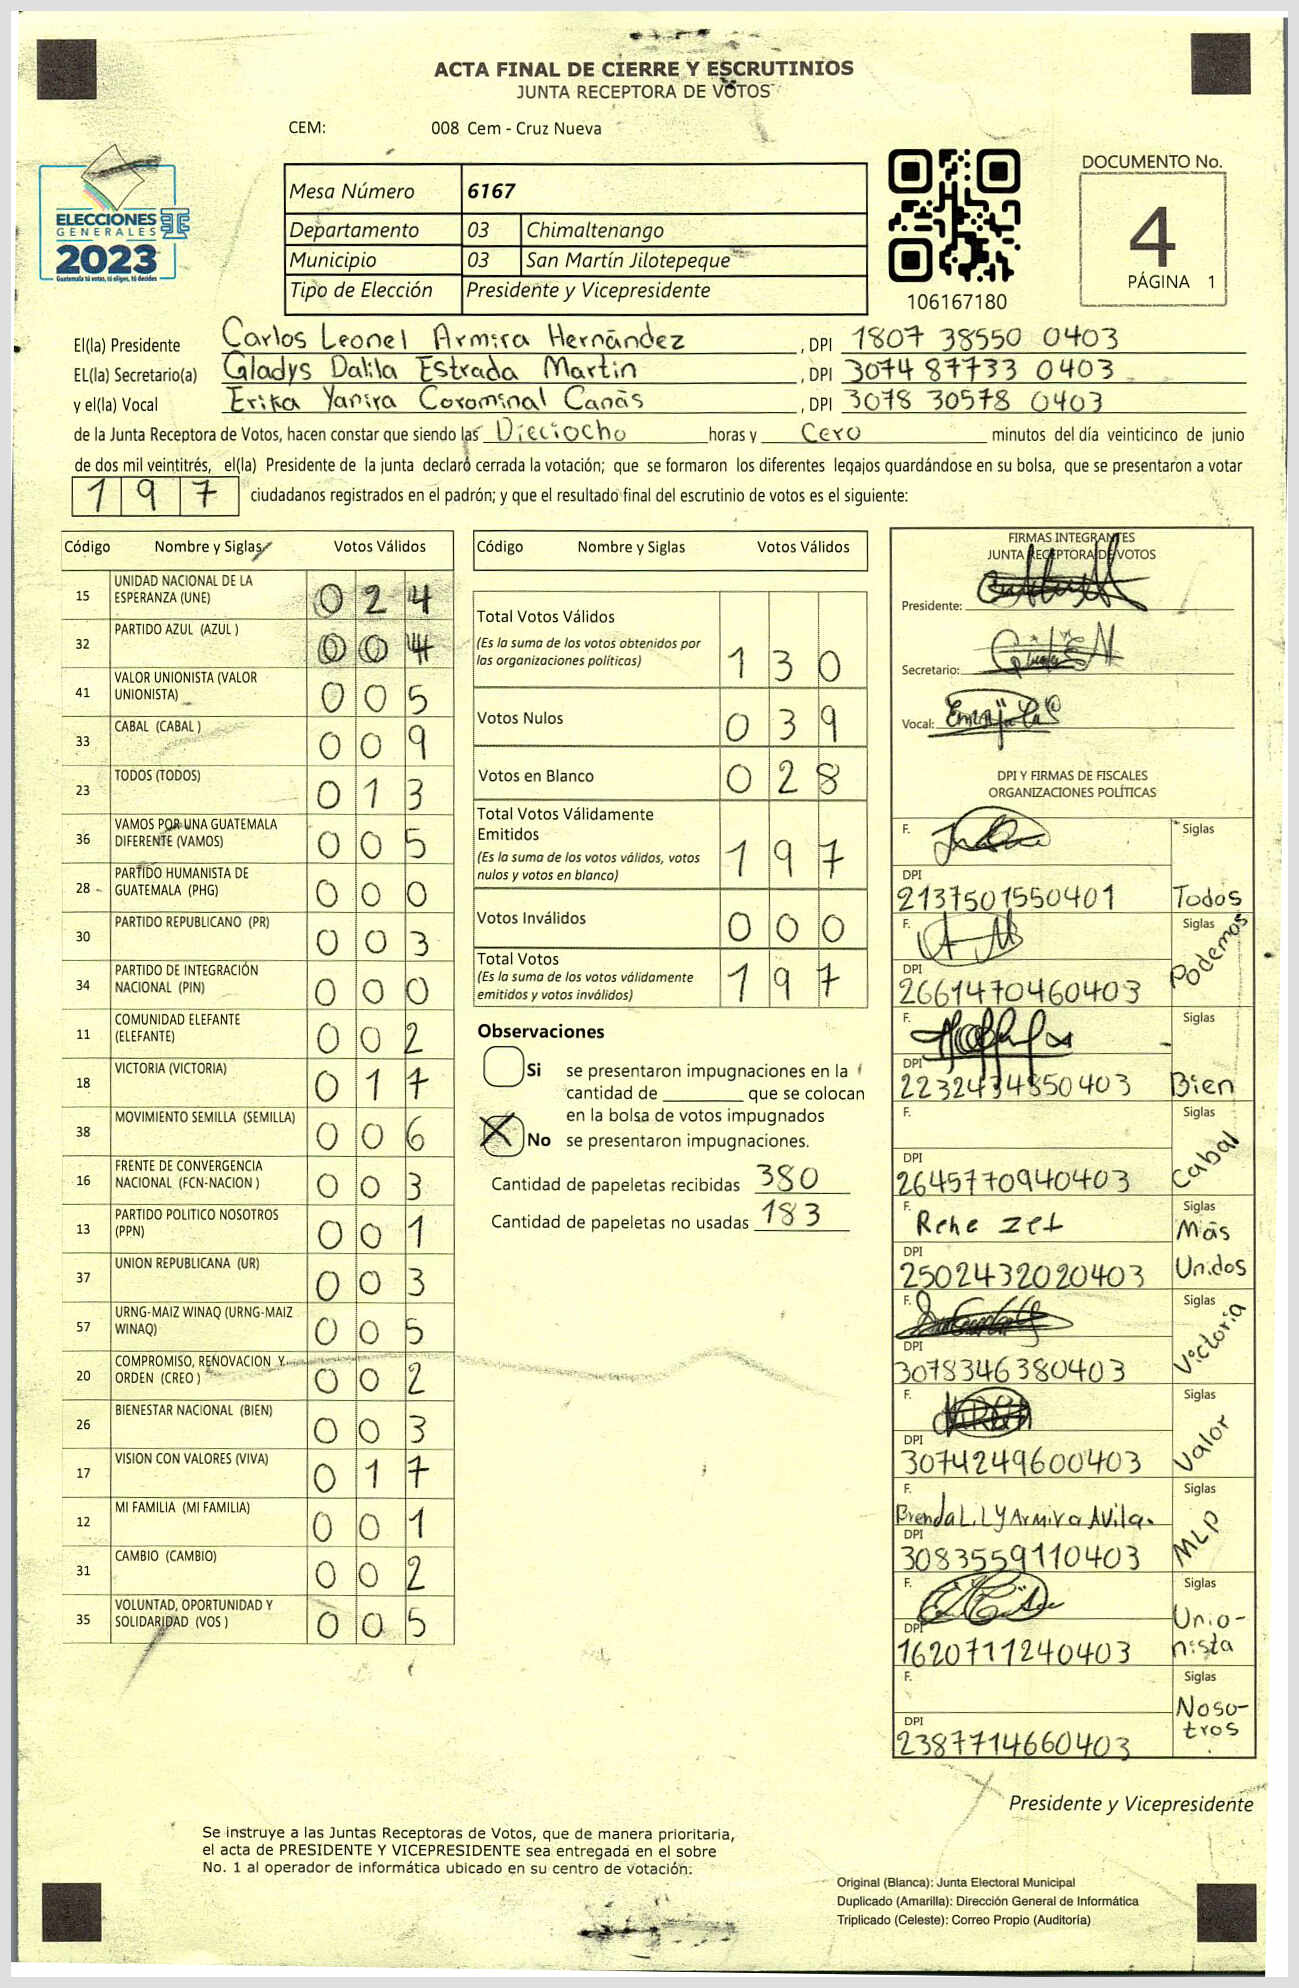 ACTA FINAL DE CIERRE Y ESCRUTINIOS
JUNTA RECEPTORA DE VOTOS
CEM: 008 Cem - Cruz Nueva
ELECCIONES
GENERALES
2023
Guatemala tú votas, tú eliges, tú decides
Mesa Número 6167
Departamento 03 Chimaltenango
Municipio 03 San Martín Jilotepeque
Tipo de Elección Presidente y Vicepresidente
106167180
DOCUMENTO No.
4
PÁGINA 1
El(la) Presidente Carlos Leonel Armira Hernández, DPI 1807 38550 0403
EL(la) Secretario(a) Gladys Dalila Estrada Martin, DPI 3074 87733 0403
y el(la) Vocal Erika Yanira Corominal Canàs, DPI 3078 30578 0403
de la Junta Receptora de Votos, hacen constar que siendo las Dieciocho horas y Cero minutos del día veinticinco de junio
de dos mil veintitrés, el(la) Presidente de la junta declaró cerrada la votación; que se formaron los diferentes legajos guardándose en su bolsa, que se presentaron a votar
197 ciudadanos registrados en el padrón; y que el resultado final del escrutinio de votos es el siguiente:
Código Nombre y Siglas Votos Válidos
15 UNIDAD NACIONAL DE LA ESPERANZA (UNE) 024
32 PARTIDO AZUL (AZUL ) 004
41 VALOR UNIONISTA (VALOR UNIONISTA) 005
33 CABAL (CABAL ) 009
23 TODOS (TODOS) 013
36 VAMOS POR UNA GUATEMALA DIFERENTE (VAMOS) 005
28 PARTIDO HUMANISTA DE GUATEMALA (PHG) 000
30 PARTIDO REPUBLICANO (PR) 003
34 PARTIDO DE INTEGRACIÓN NACIONAL (PIN) 000
11 COMUNIDAD ELEFANTE (ELEFANTE) 002
18 VICTORIA (VICTORIA) 017
38 MOVIMIENTO SEMILLA (SEMILLA) 006
16 FRENTE DE CONVERGENCIA NACIONAL (FCN-NACION ) 003
13 PARTIDO POLITICO NOSOTROS (PPN) 001
37 UNION REPUBLICANA (UR) 003
57 URNG-MAIZ WINAQ (URNG-MAIZ WINAQ) 005
20 COMPROMISO, RENOVACION Y ORDEN (CREO ) 002
26 BIENESTAR NACIONAL (BIEN) 003
17 VISION CON VALORES (VIVA) 017
12 MI FAMILIA (MI FAMILIA) 001
31 CAMBIO (CAMBIO) 002
35 VOLUNTAD, OPORTUNIDAD Y SOLIDARIDAD (VOS ) 005
Código Nombre y Siglas Votos Válidos
Total Votos Válidos
(Es la suma de los votos obtenidos por
las organizaciones políticas) 130
Votos Nulos 039
Votos en Blanco 028
Total Votos Válidamente
Emitidos
(Es la suma de los votos válidos, votos
nulos y votos en blanco) 197
Votos Inválidos 000
Total Votos
(Es la suma de los votos válidamente
emitidos y votos inválidos) 197
Observaciones
Si se presentaron impugnaciones en la
cantidad de ________ que se colocan
en la bolsa de votos impugnados
No se presentaron impugnaciones.
Cantidad de papeletas recibidas 380
Cantidad de papeletas no usadas 183
FIRMAS INTEGRANTES
JUNTA RECEPTORA DE VOTOS
Presidente:
Secretario:
Vocal:
DPI Y FIRMAS DE FISCALES
ORGANIZACIONES POLÍTICAS
F. Siglas
DPI
2137501550401 Todos
F. Siglas
DPI
2661470460403 Podemos
F. Siglas
DPI
2232434850403 Bien
F. Siglas
DPI
2645770940403 Cabal
F. Rene Zet Siglas
DPI
2502432020403 Màs Unidos
F. Siglas
DPI
3078346380403 Victoria
F. Siglas
DPI
3074249600403 Valor
F. Siglas
Brenda LILY Armira AVila.
DPI
3083559110403 MLP
F. Siglas
DPI
1620711240403 Unio-nista
F. Siglas
DPI
2387714660403 Noso-tros
Presidente y Vicepresidente
Se instruye a las Juntas Receptoras de Votos, que de manera prioritaria,
el acta de PRESIDENTE Y VICEPRESIDENTE sea entregada en el sobre
No. 1 al operador de informática ubicado en su centro de votación.
Original (Blanca): Junta Electoral Municipal
Duplicado (Amarilla): Dirección General de Informática
Triplicado (Celeste): Correo Propio (Auditoría)